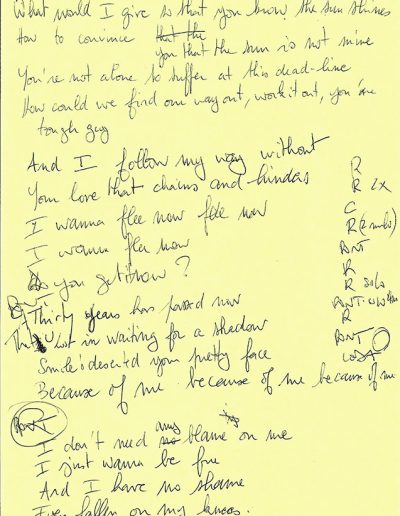 What would I give so that you know the sun shines
How to convince that the
you that the sun is not mine
You're not alone to suffer at this dead-line
How could we find our way out, work it out, you're
tough guy
And I follow my way without
Your love that chains and hinders
I wanna flee now flee now
I wanna flee now
Do you get it now?
Thirty years has passed now
That U lost in waiting for a shadow
Smile's deserted your pretty face
Because of me because of me because of me
R
R 2x
C
R (2 mubo)
ANT
R
R solo
ANT
R
ANT
PONT
I don't need any no blame on me
I just wanna be free
And I have no shame
Even fallen on my knees.